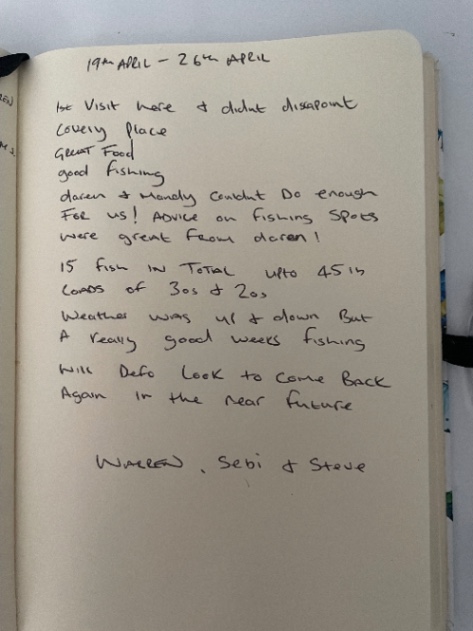 19th APRIL - 26th APRIL
1st Visit here & didnt dissapoint
Lovely Place
GREAT Food
good fishing
daren & Mandy Couldnt Do enough
FOR us! ADVICE on fishing SPOTS
were great from daren!
15 fish IN TOTAL upto 45lb
LOADS of 30s & 20s
Weather was up & down But
A really good weeks fishing
Will Defo Look to Come Back
Again in the near future
WARREN, Sebi & Steve